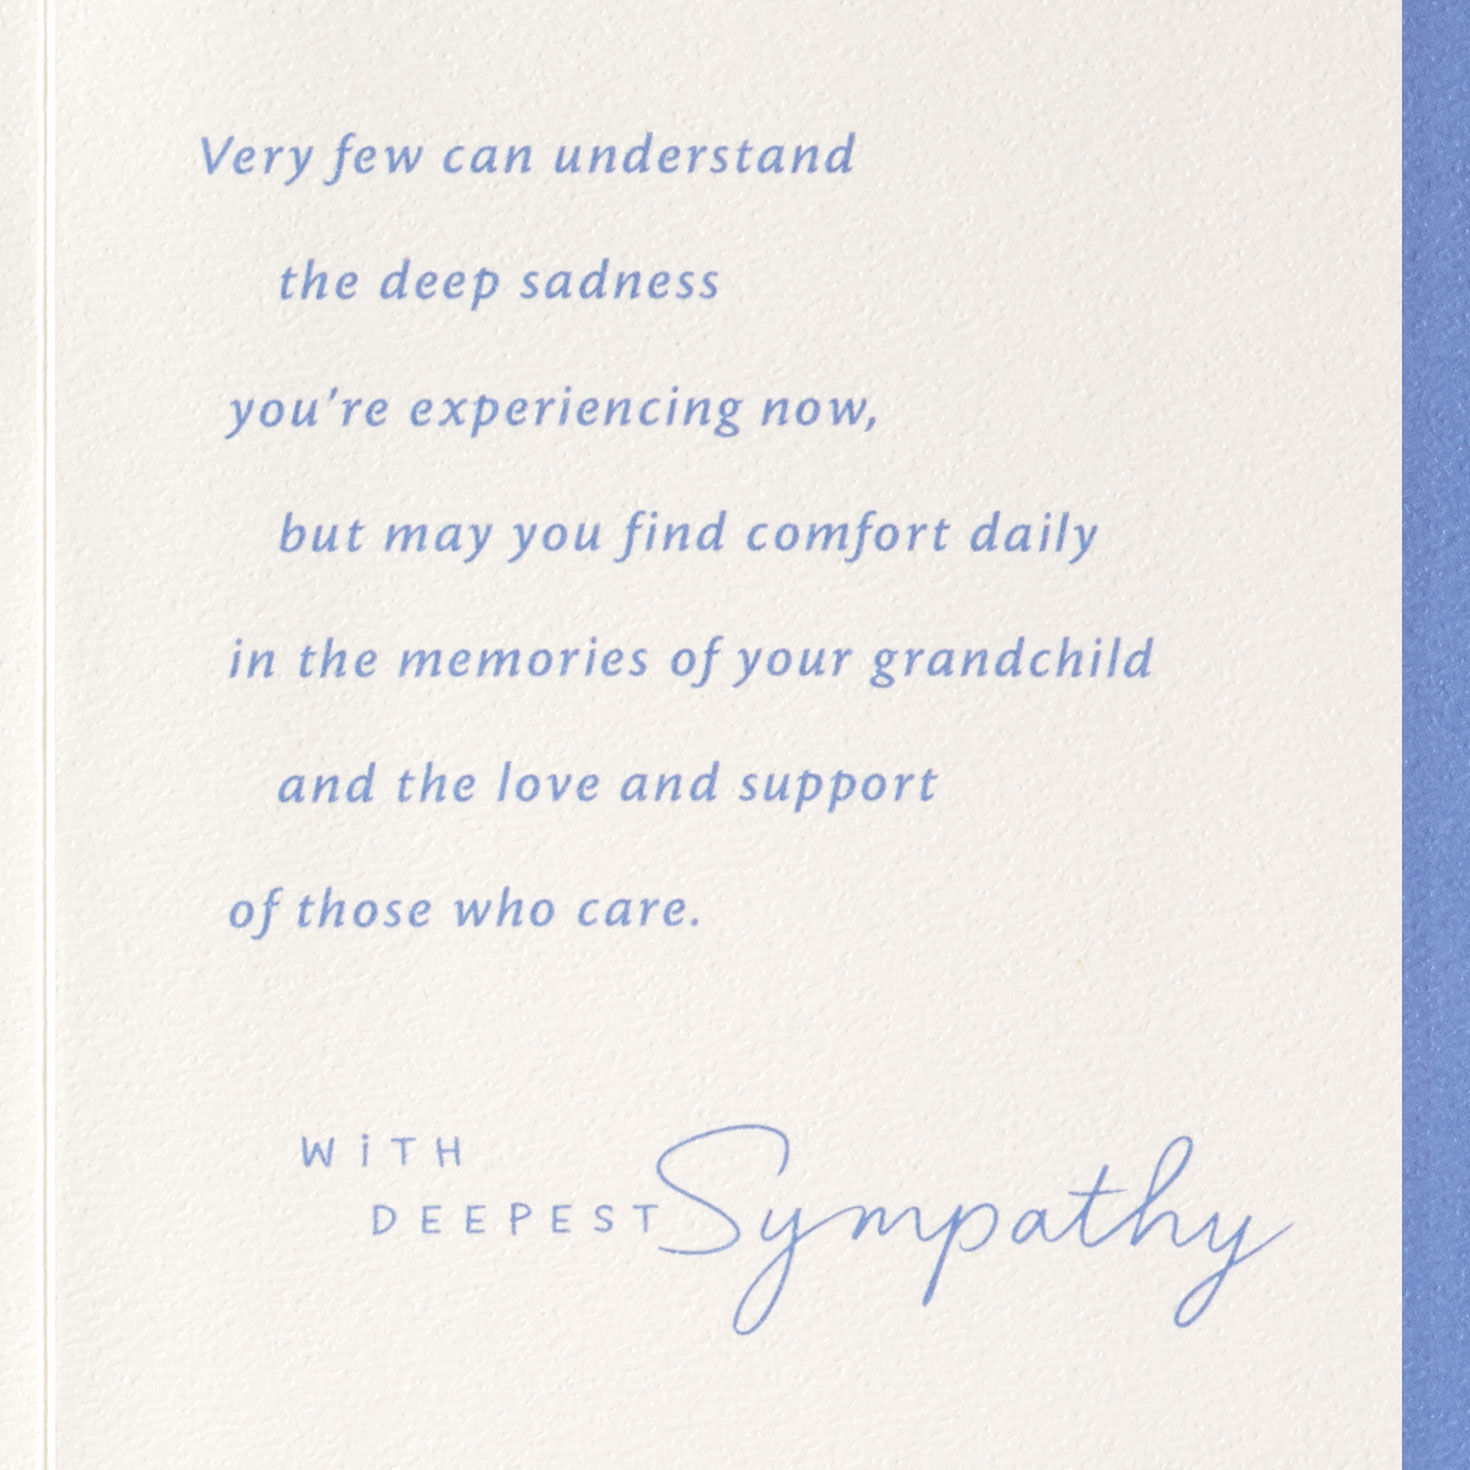 Very few can understand
the deep sadness
you're experiencing now,
but may you find comfort daily
in the memories of your grandchild
and the love and support
of those who care.
WiTH
DEEPEST Sympathy